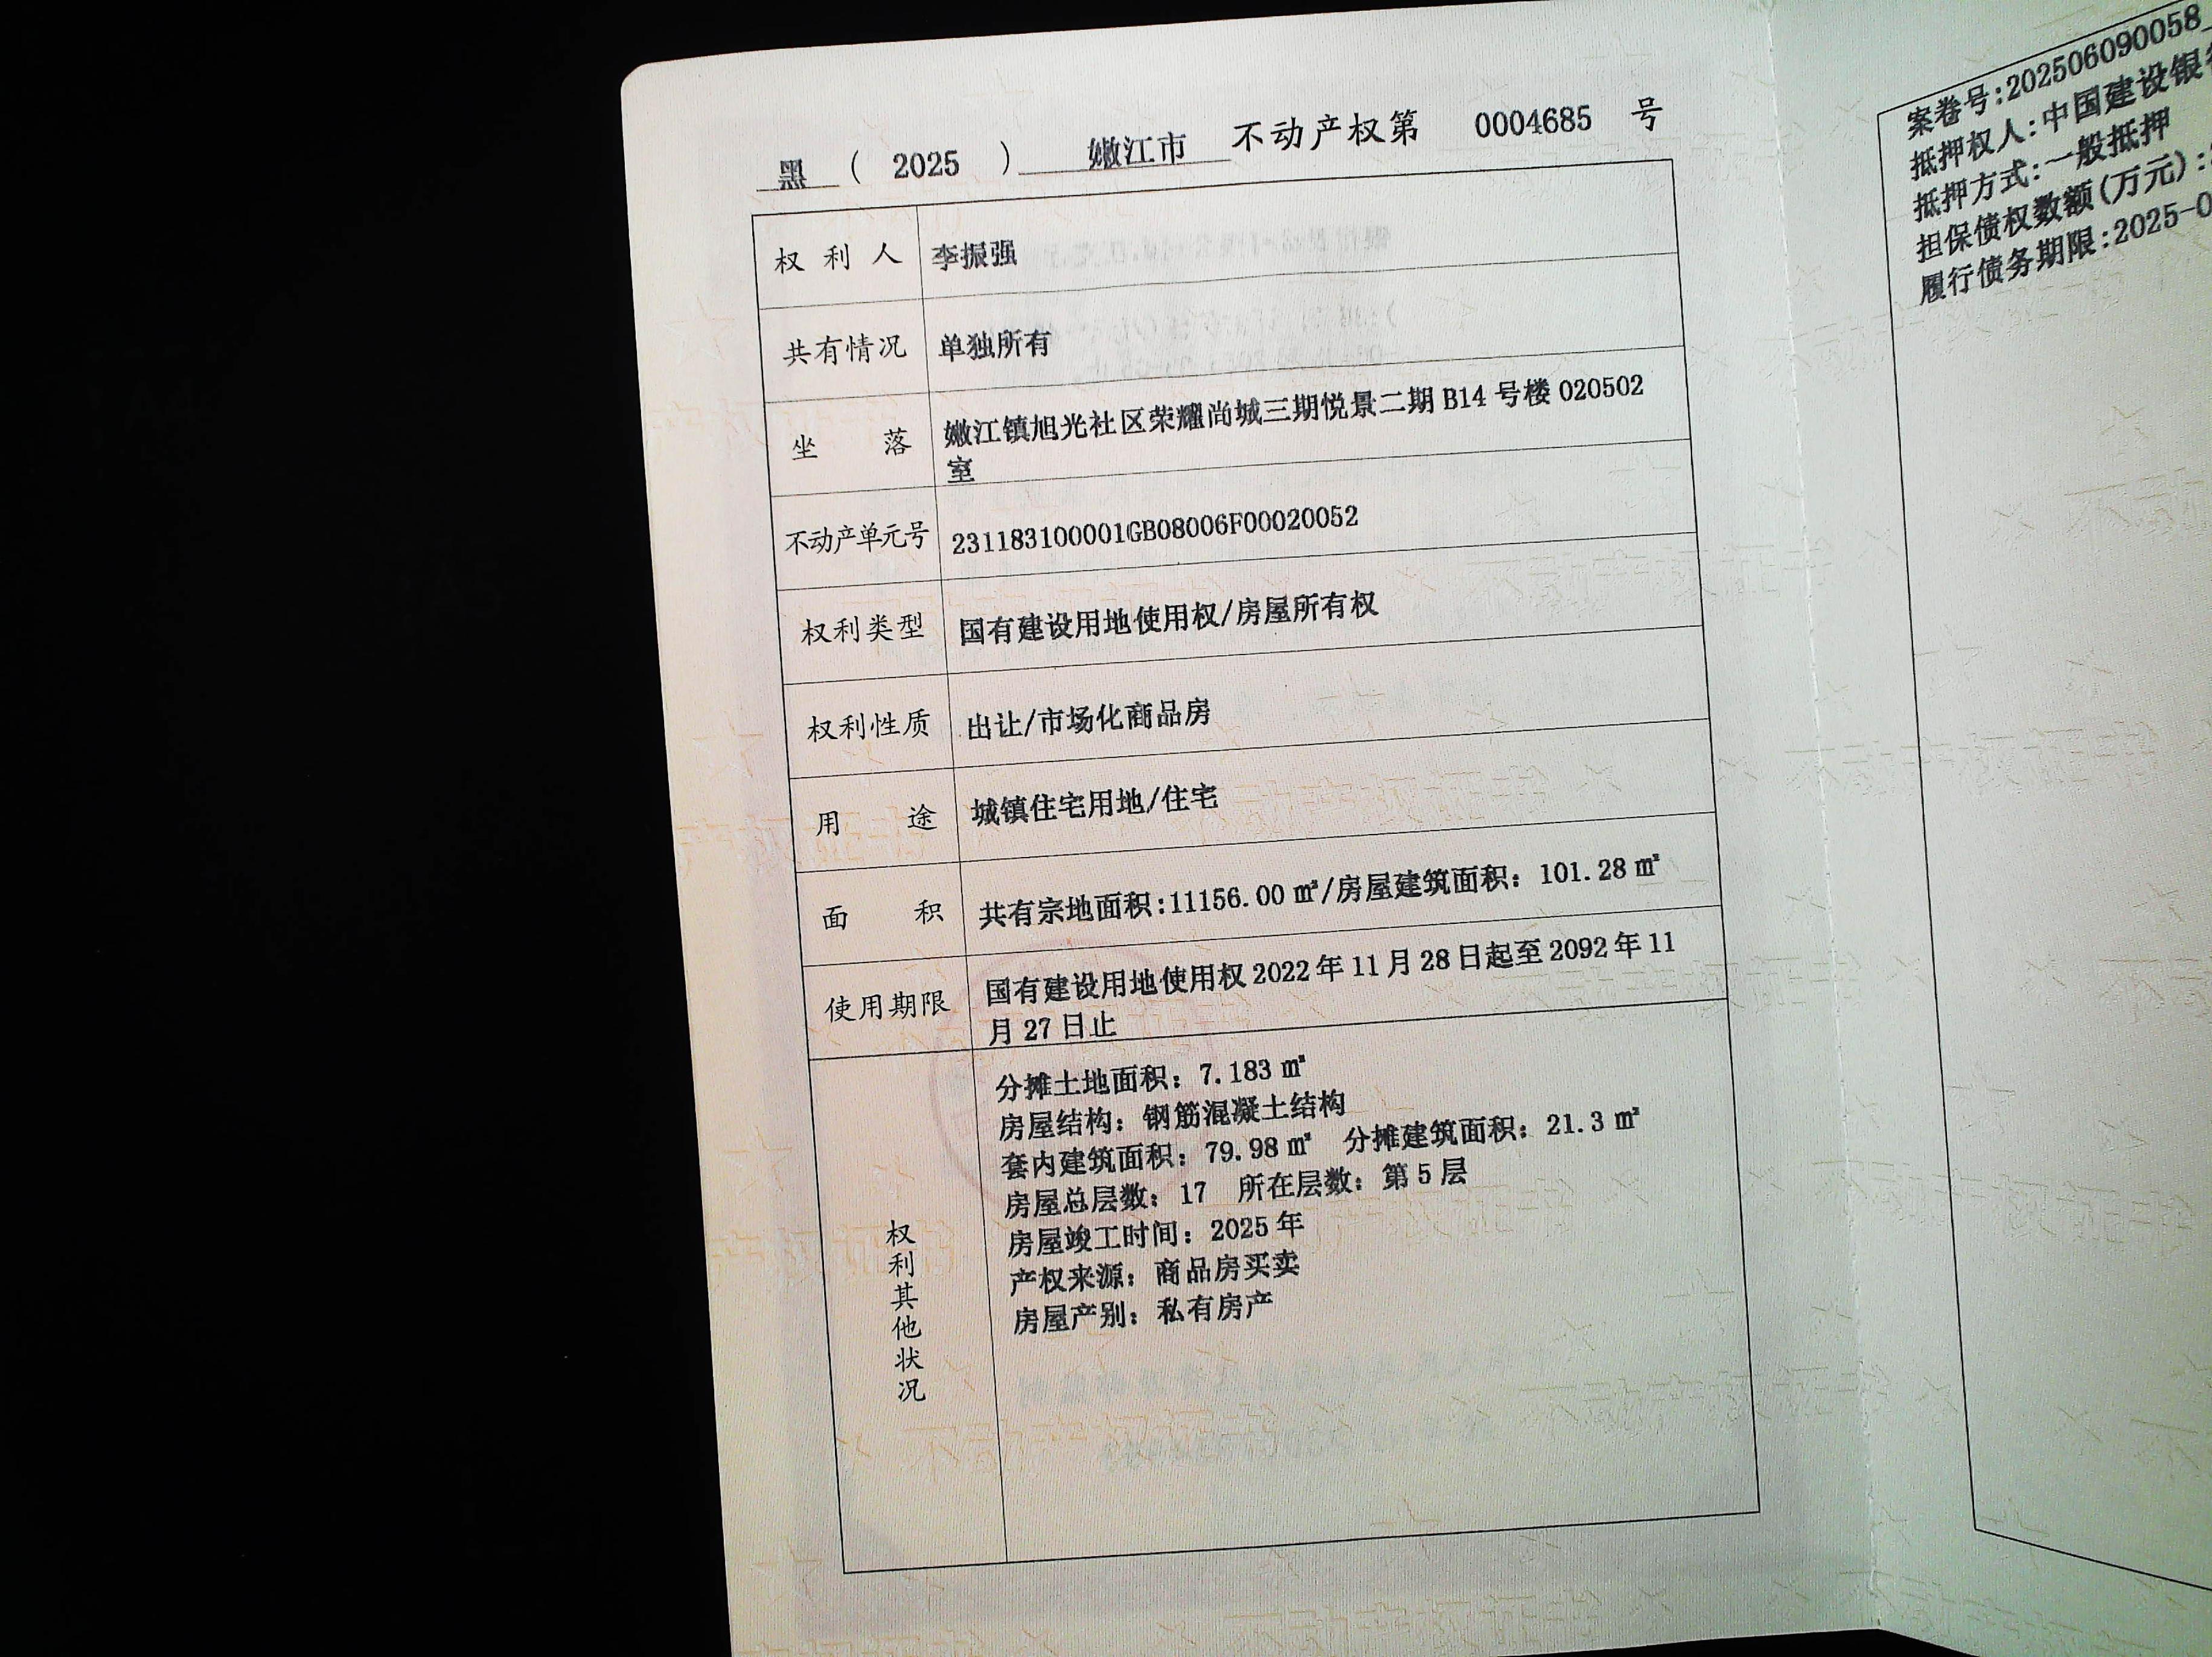 黑 ( 2025 ) 嫩江市 不动产权第 0004685 号
权利人 李振强
共有情况 单独所有
坐落 嫩江镇旭光社区荣耀尚城三期悦景二期 B14 号楼 020502
室
不动产单元号 231183100001GB08006F00020052
权利类型 国有建设用地使用权/房屋所有权
权利性质 出让/市场化商品房
用途 城镇住宅用地/住宅
面积 共有宗地面积:11156.00 ㎡/房屋建筑面积: 101.28 ㎡
使用期限 国有建设用地使用权 2022 年 11 月 28 日起至 2092 年 11
月 27 日止
权利其他状况
分摊土地面积: 7.183 ㎡
房屋结构: 钢筋混凝土结构
套内建筑面积: 79.98 ㎡ 分摊建筑面积: 21.3 ㎡
房屋总层数: 17 所在层数: 第 5 层
房屋竣工时间: 2025 年
产权来源: 商品房买卖
房屋产别: 私有房产
案卷号:202506090058
抵押权人:中国建设银
抵押方式:一般抵押
担保债权数额(万元):
履行债务期限:2025-0